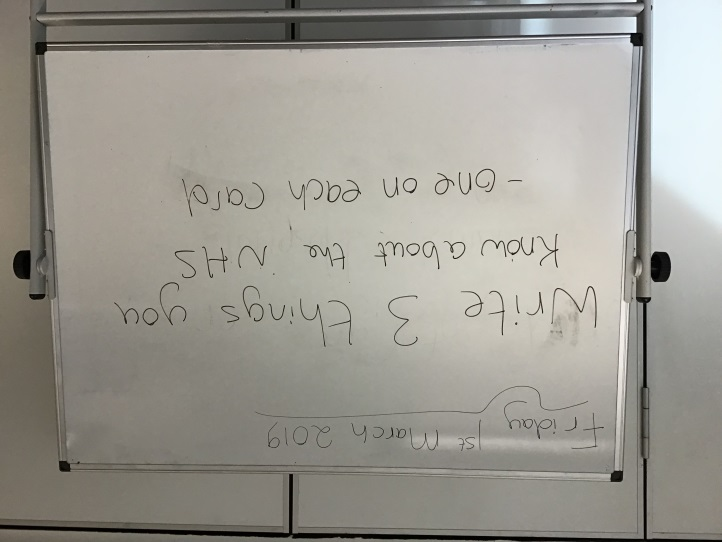 Friday 1st March 2019
Write 3 things you
know about the NHS
- one on each card